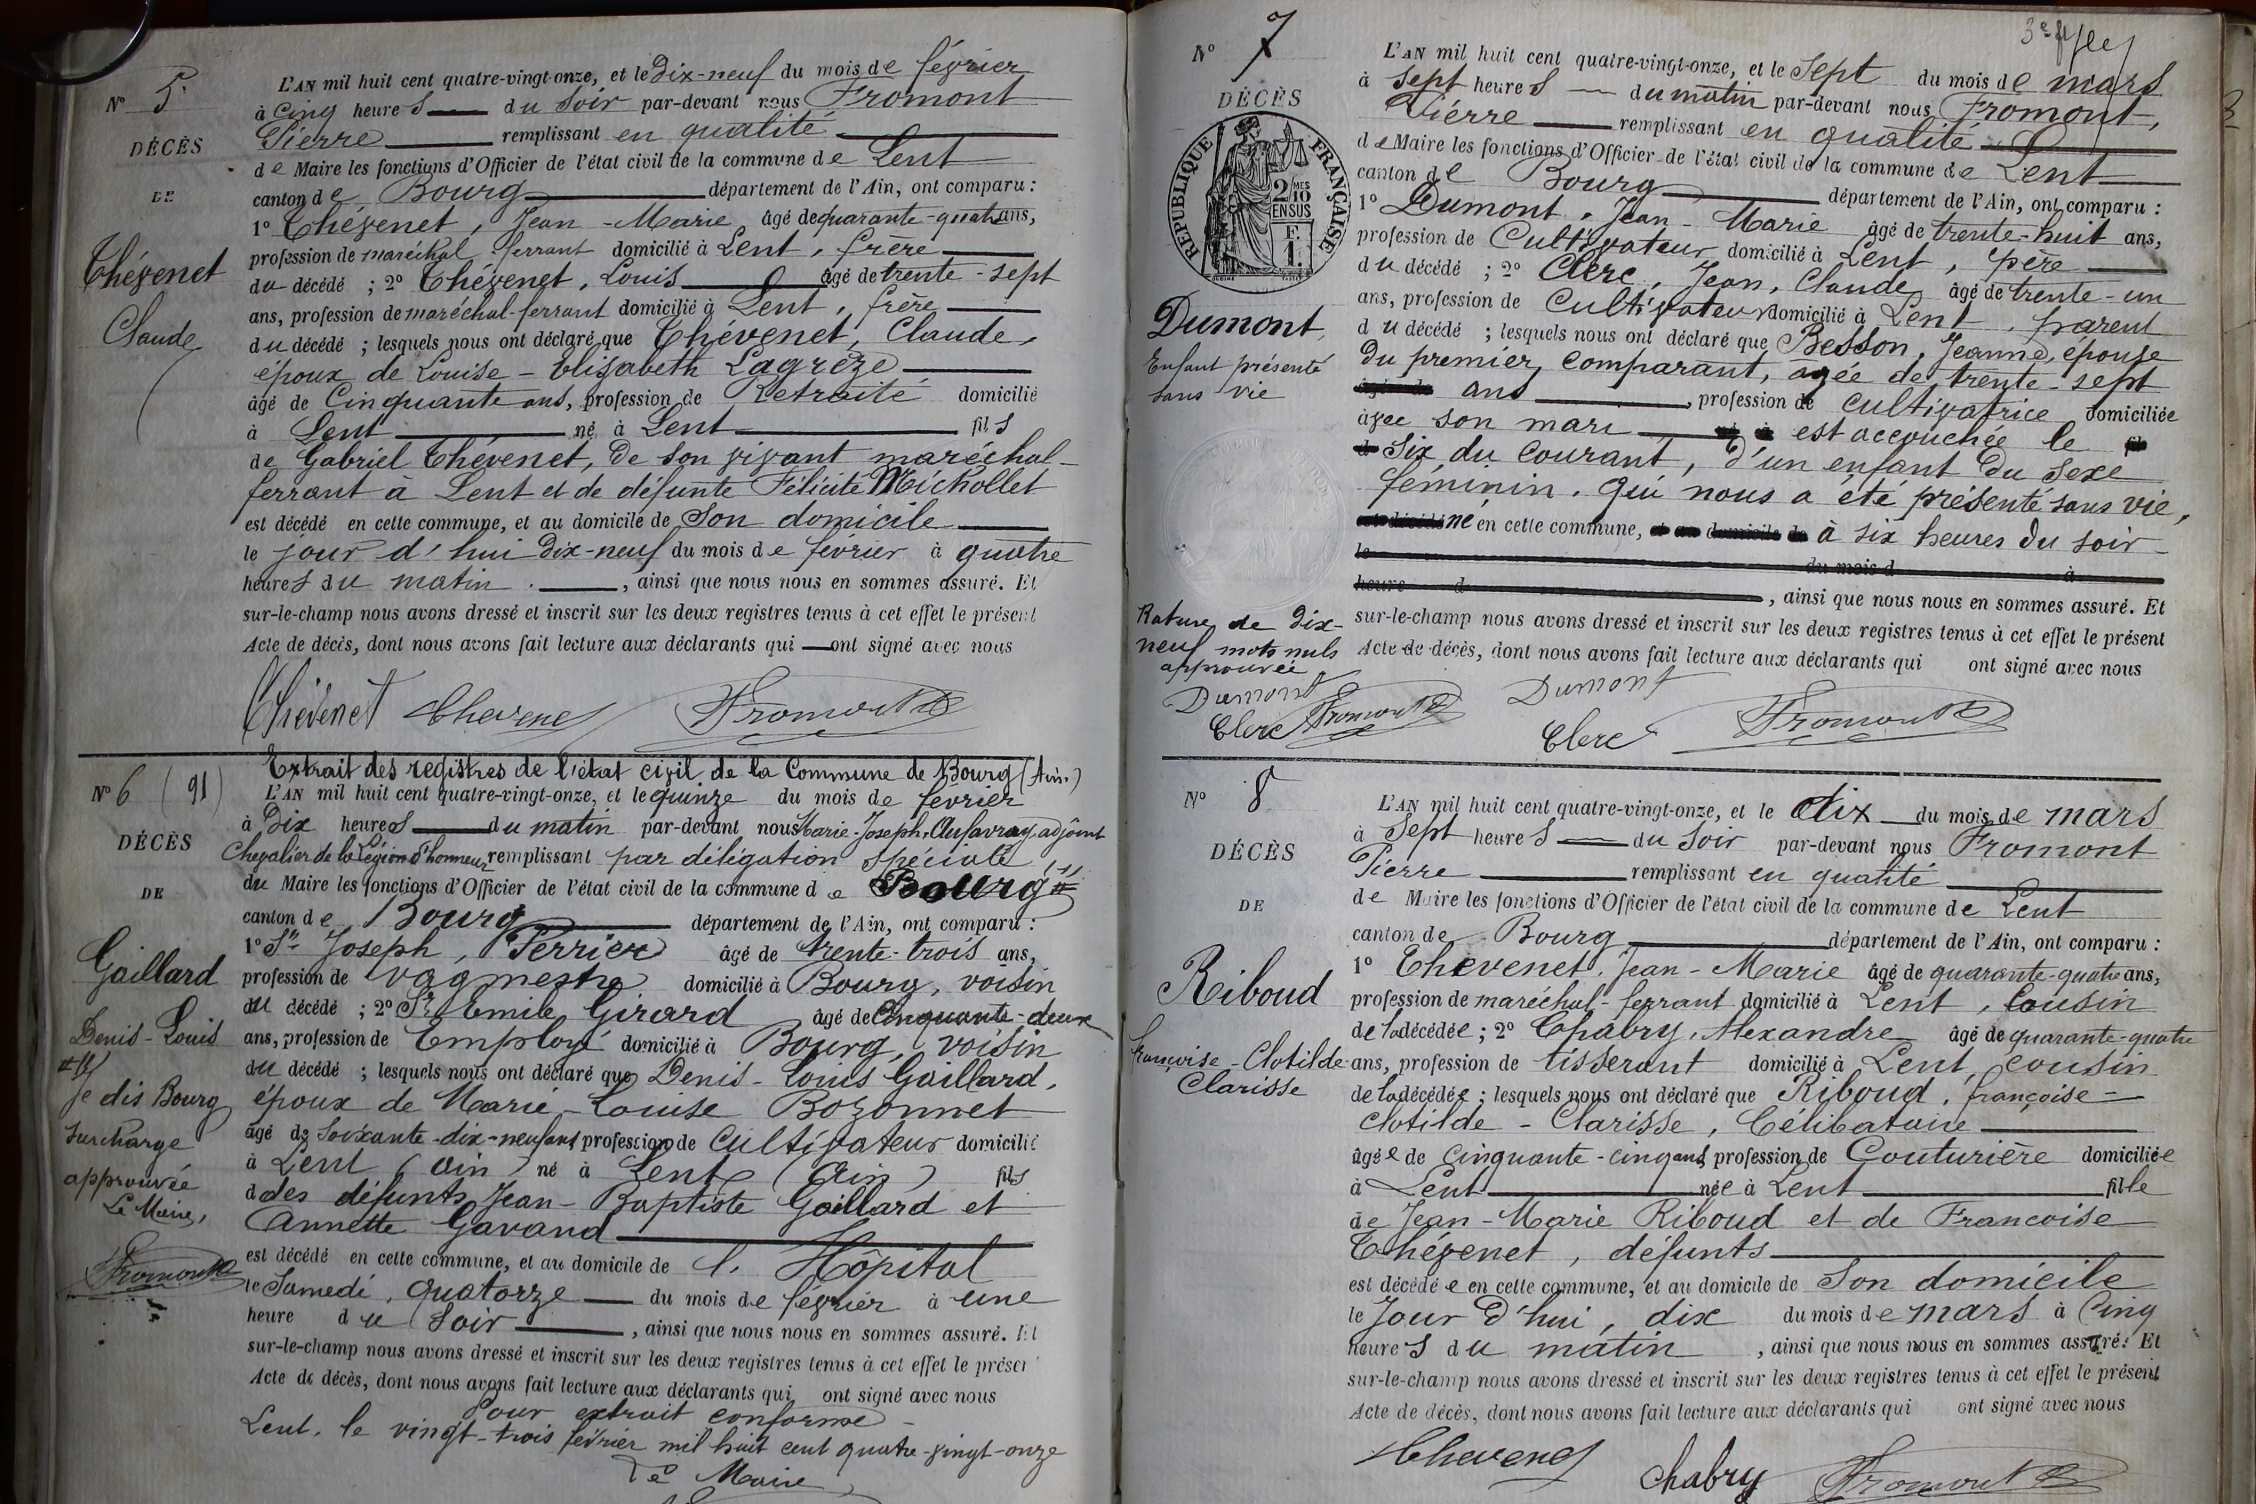 N° 5
DÉCÈS
DE
Thévenet
Claude
L'AN mil huit cent quatre-vingt-onze, et le Dix-neuf du mois de février
à cinq heures du soir par-devant nous Fromont
Pierre remplissant en qualité
de Maire les fonctions d'Officier de l'état civil de la commune de Lent
canton de Bourg département de l'Ain, ont comparu :
1° Thévenet, Jean-Marie âgé de quarante-quatre ans,
profession de maréchal ferrant domicilié à Lent, frère
du décédé ; 2° Thévenet, Louis âgé de trente-sept
ans, profession de maréchal-ferrant domicilié à Lent, frère
du décédé ; lesquels nous ont déclaré que Thévenet, Claude,
époux de Louise-Elisabeth Lagrèze
âgé de Cinquante ans, profession de Retraité domicilié
à Lent né à Lent fils
de Gabriel Thévenet, de son vivant maréchal-
ferrant à Lent et de défunte Félicité Michollet
est décédé en cette commune, et au domicile de son domicile
le jour d'hui Dix-neuf du mois de février à quatre
heures du matin, ainsi que nous nous en sommes assuré. Et
sur-le-champ nous avons dressé et inscrit sur les deux registres tenus à cet effet le présent
Acte de décès, dont nous avons fait lecture aux déclarants qui ont signé avec nous
Thévenet Thevenet Fromont
N° 6 (91)
DÉCÈS
DE
Gaillard
Denis-Louis
Je dis Bourg
surcharge
approuvée
Le Maire,
Fromont
Extrait des registres de l'état civil de la Commune de Bourg (Ain.)
L'AN mil huit cent quatre-vingt-onze, et le quinze du mois de février
à Dix heures du matin par-devant nous Marie-Joseph, adjoint
Chevalier de la Légion d'honneur remplissant par délégation spéciale
du Maire les fonctions d'Officier de l'état civil de la commune de Bourg
canton de Bourg département de l'Ain, ont comparu :
1° Sr Joseph, Perrier âgé de trente-trois ans,
profession de vagmestre domicilié à Bourg, voisin
du décédé ; 2° Sr Emile Girard âgé de Cinquante-deux
ans, profession de Employé domicilié à Bourg, voisin
du décédé ; lesquels nous ont déclaré que Denis-Louis Gaillard,
époux de Marie-Louise Bozonnet
âgé de soixante-dix-neuf ans, profession de cultivateur domicilié
à Lent (Ain) né à Lent (Ain) fils
des défunts Jean-Baptiste Gaillard et
Annette Gavand
est décédé en cette commune, et au domicile de l'Hôpital
le Samedi, quatorze du mois de février à une
heure du soir, ainsi que nous nous en sommes assuré. Et
sur-le-champ nous avons dressé et inscrit sur les deux registres tenus à cet effet le présent
Acte de décès, dont nous avons fait lecture aux déclarants qui ont signé avec nous
Pour extrait conforme
Lent, le vingt-trois février mil huit cent quatre-vingt-onze
Le Maire,
N° 7
DÉCÈS
RÉPUBLIQUE FRANÇAISE
2/10 MES
EN SUS
F.
1.
Dumont,
Enfant présenté
sans vie
Rature de Dix-
neuf mots nuls
approuvée
Dumont
Clerc Fromont
L'AN mil huit cent quatre-vingt-onze, et le sept du mois de mars
à sept heures du matin par-devant nous Fromont,
Pierre remplissant en qualité
de Maire les fonctions d'Officier de l'état civil de la commune de Lent
canton de Bourg département de l'Ain, ont comparu :
1° Dumont, Jean-Marie âgé de trente-huit ans,
profession de Cultivateur domicilié à Lent, père
du décédé ; 2° Clerc, Jean, Claude âgé de trente-un
ans, profession de Cultivateur domicilié à Lent, parent
du décédé ; lesquels nous ont déclaré que Besson, Jeanne, épouse
du premier comparant, agée de trente-sept
ans, profession de cultivatrice domiciliée
avec son mari est accouchée le
six du courant, d'un enfant du sexe
féminin, qui nous a été présenté sans vie,
né en cette commune, à six heures du soir
du mois d à
heure d, ainsi que nous nous en sommes assuré. Et
sur-le-champ nous avons dressé et inscrit sur les deux registres tenus à cet effet le présent
Acte de décès, dont nous avons fait lecture aux déclarants qui ont signé avec nous
Dumont
Clerc Fromont
N° 8
DÉCÈS
DE
Riboud
françoise-Clotilde
Clarisse
L'AN mil huit cent quatre-vingt-onze, et le dix du mois de mars
à sept heures du soir par-devant nous Fromont
Pierre remplissant en qualité
de Maire les fonctions d'Officier de l'état civil de la commune de Lent
canton de Bourg département de l'Ain, ont comparu :
1° Thévenet, Jean-Marie âgé de quarante-quatre ans,
profession de maréchal-ferrant domicilié à Lent, cousin
de la décédée ; 2° Chabry, Alexandre âgé de quarante-quatre
ans, profession de tisserant domicilié à Lent, cousin
de la décédée ; lesquels nous ont déclaré que Riboud, françoise-
Clotilde-Clarisse, Célibataire
âgée de cinquante-cinq ans, profession de Couturière domiciliée
à Lent née à Lent fille
de Jean-Marie Riboud et de Francoise
Thévenet, défunts
est décédée en cette commune, et au domicile de son domicile
le Jour d'hui, dix du mois de mars à Cinq
heures du matin, ainsi que nous nous en sommes assuré. Et
sur-le-champ nous avons dressé et inscrit sur les deux registres tenus à cet effet le présent
Acte de décès, dont nous avons fait lecture aux déclarants qui ont signé avec nous
Thevenet
Chabry Fromont